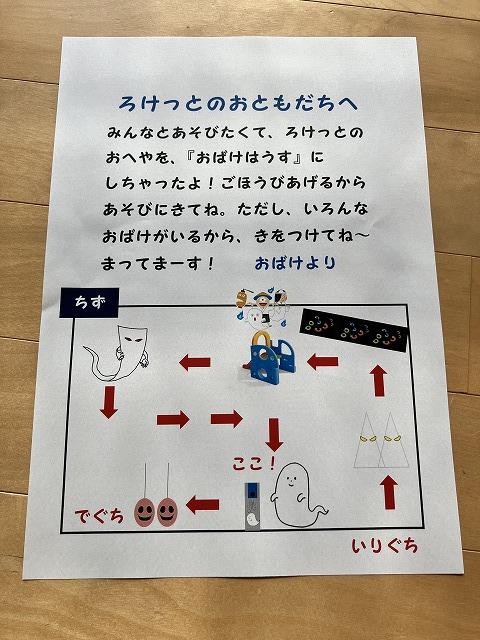 ろけっとのおともだちへ
みんなとあそびたくて、ろけっとの
おへやを、『おばけはうす』に
しちゃったよ！ごほうびあげるから
あそびにきてね。ただし、いろんな
おばけがいるから、きをつけてね～
まってまーす！　おばけより
ちず
ここ！
でぐち
いりぐち